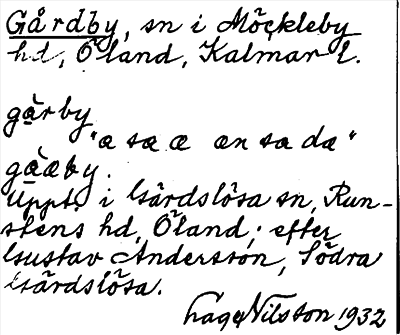 Gårdby, sn i Möckleby
hd, Öland, Kalmar l.
gàrby
"æ sæ æ æn sa dæ"
gàæby.
Uppt. i Gärdslösa sn, Run-
stens hd, Öland; efter
Gustav Andersson, Södra
Gärdslösa.
Nilsson 1932